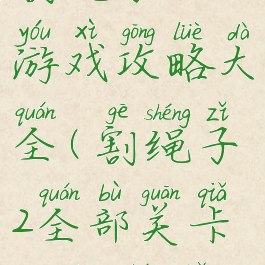 yóu xì gōng lüè dà
游戏攻略大
quán gē shéng zǐ
全(割绳子
quán bù guān qiǎ
2全部关卡